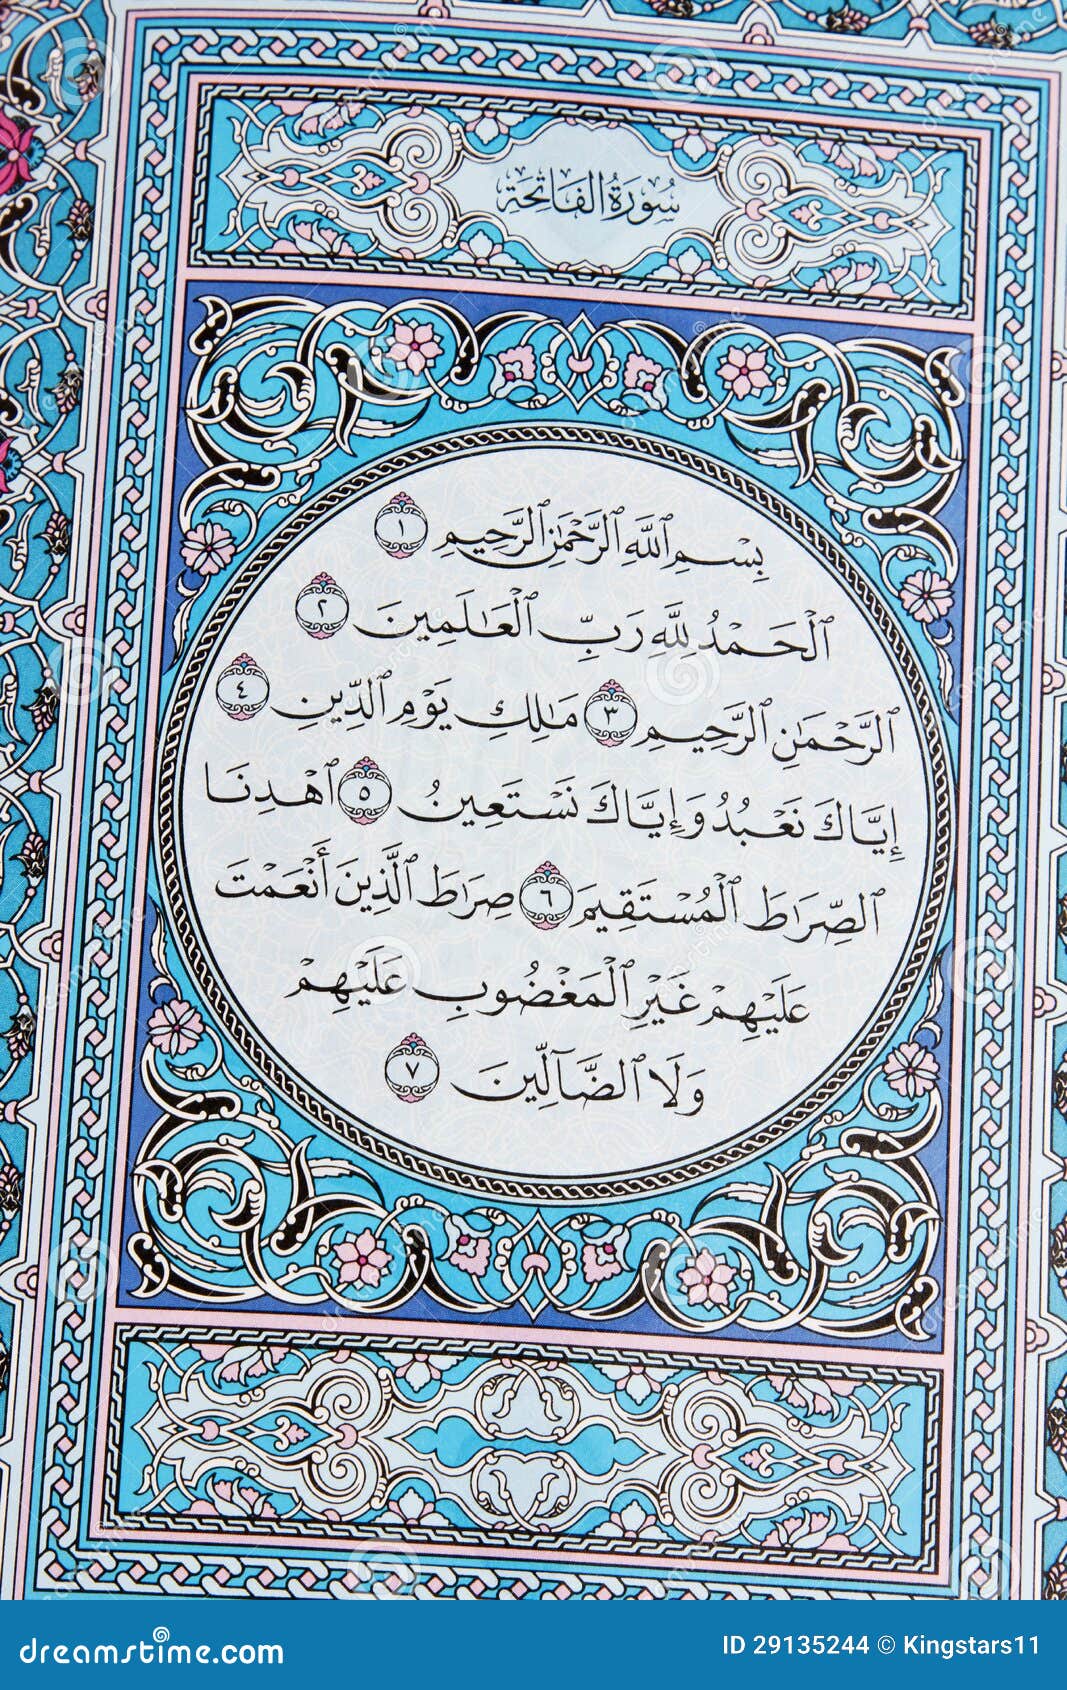 سُورَةُ الفَاتِحَة
بِسْمِ ٱللَّهِ ٱلرَّحْمَٰنِ ٱلرَّحِيمِ ١
ٱلْحَمْدُ لِلَّهِ رَبِّ ٱلْعَٰلَمِينَ ٢
ٱلرَّحْمَٰنِ ٱلرَّحِيمِ ٣ مَٰلِكِ يَوْمِ ٱلدِّينِ ٤
إِيَّاكَ نَعْبُدُ وَإِيَّاكَ نَسْتَعِينُ ٥ ٱهْدِنَا
ٱلصِّرَٰطَ ٱلْمُسْتَقِيمَ ٦ صِرَٰطَ ٱلَّذِينَ أَنْعَمْتَ
عَلَيْهِمْ غَيْرِ ٱلْمَغْضُوبِ عَلَيْهِمْ
وَلَا ٱلضَّآلِّينَ ٧
dreamstime.com
ID 29135244 © Kingstars11